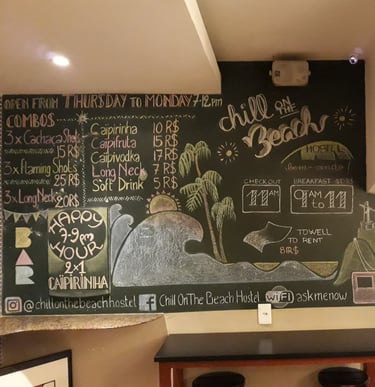 OPEN FROM THURSDAY TO MONDAY 7-12 PM
COMBOS
3x Cachaça Shot
15 R$
3x Flaming Shots
25 R$
3x Long Neck
20 R$
Caipirinha 10 R$
Caipifruta 15 R$
Caipivodka 17 R$
Long Neck 7 R$
Soft Drink 5 R$
chill ON THE
Beach
HOSTEL
bem-vindo!
CHECK OUT
11AM
BREAKFAST
9AM to 11
TOWELL
TO RENT
8R$
BAR
HAPPY
7-9pm
HOUR
2x1
CAÏPIRIÑHA
@chillonthebeachhostel
Chill OnThe Beach Hostel
WiFi askmenow